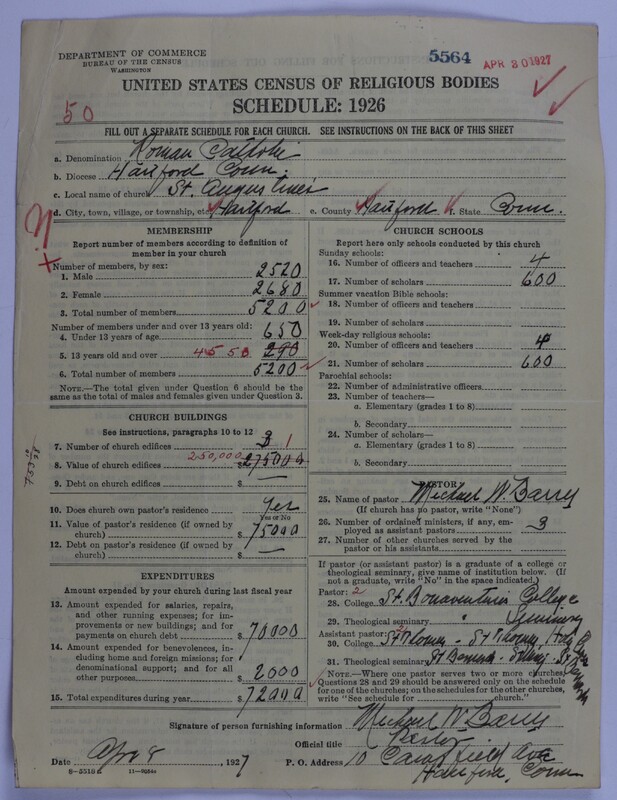 DEPARTMENT OF COMMERCE
BUREAU OF THE CENSUS
WASHINGTON
5564
APR 30 1927
UNITED STATES CENSUS OF RELIGIOUS BODIES
SCHEDULE: 1926
50
FILL OUT A SEPARATE SCHEDULE FOR EACH CHURCH. SEE INSTRUCTIONS ON THE BACK OF THIS SHEET
a. Denomination Roman Catholic
b. Diocese Hartford Conn.
c. Local name of church St. Augustines
d. City, town, village, or township, etc. Hartford e. County Hartford f. State Conn.
MEMBERSHIP
Report number of members according to definition of member in your church
Number of members, by sex:
1. Male 2520
2. Female 2680
3. Total number of members 5200
Number of members under and over 13 years old:
4. Under 13 years of age 650
5. 13 years old and over 4550
6. Total number of members 5200
NOTE.—The total given under Question 6 should be the same as the total of males and females given under Question 3.
CHURCH BUILDINGS
See instructions, paragraphs 10 to 12
7. Number of church edifices 3 1
8. Value of church edifices 250,000 $ 275000
9. Debt on church edifices $ —
10. Does church own pastor's residence Yes
Yes or No
11. Value of pastor's residence (if owned by church) $ 75000
12. Debt on pastor's residence (if owned by church) $ —
EXPENDITURES
Amount expended by your church during last fiscal year
13. Amount expended for salaries, repairs, and other running expenses; for improvements or new buildings; and for payments on church debt $ 70000
14. Amount expended for benevolences, including home and foreign missions; for denominational support; and for all other purposes $ 2000
15. Total expenditures during year $ 72000
CHURCH SCHOOLS
Report here only schools conducted by this church
Sunday schools:
16. Number of officers and teachers 4
17. Number of scholars 600
Summer vacation Bible schools:
18. Number of officers and teachers
19. Number of scholars
Week-day religious schools:
20. Number of officers and teachers 4
21. Number of scholars 600
Parochial schools:
22. Number of administrative officers
23. Number of teachers—
a. Elementary (grades 1 to 8)
b. Secondary
24. Number of scholars—
a. Elementary (grades 1 to 8)
b. Secondary
PASTOR
25. Name of pastor Michael W. Barry
(If church has no pastor, write "None")
26. Number of ordained ministers, if any, employed as assistant pastors 3
27. Number of other churches served by the pastor or his assistants
If pastor (or assistant pastor) is a graduate of a college or theological seminary, give name of institution below. (If not a graduate, write "No" in the space indicated.)
Pastor: 2
28. College St. Bonaventures College
29. Theological seminary " Seminary
Assistant pastor:
30. College St Thomas - St Thomas, Holy
31. Theological seminary
NOTE.—Where one pastor serves two or more churches, Questions 28 and 29 should be answered only on the schedule for one of the churches; on the schedules for the other churches, write "See schedule for church."
Signature of person furnishing information Michael W. Barry
Official title Pastor
Date Apr 8, 1927 P. O. Address 10 Campfield Ave
Hartford, Conn
8-5510 a